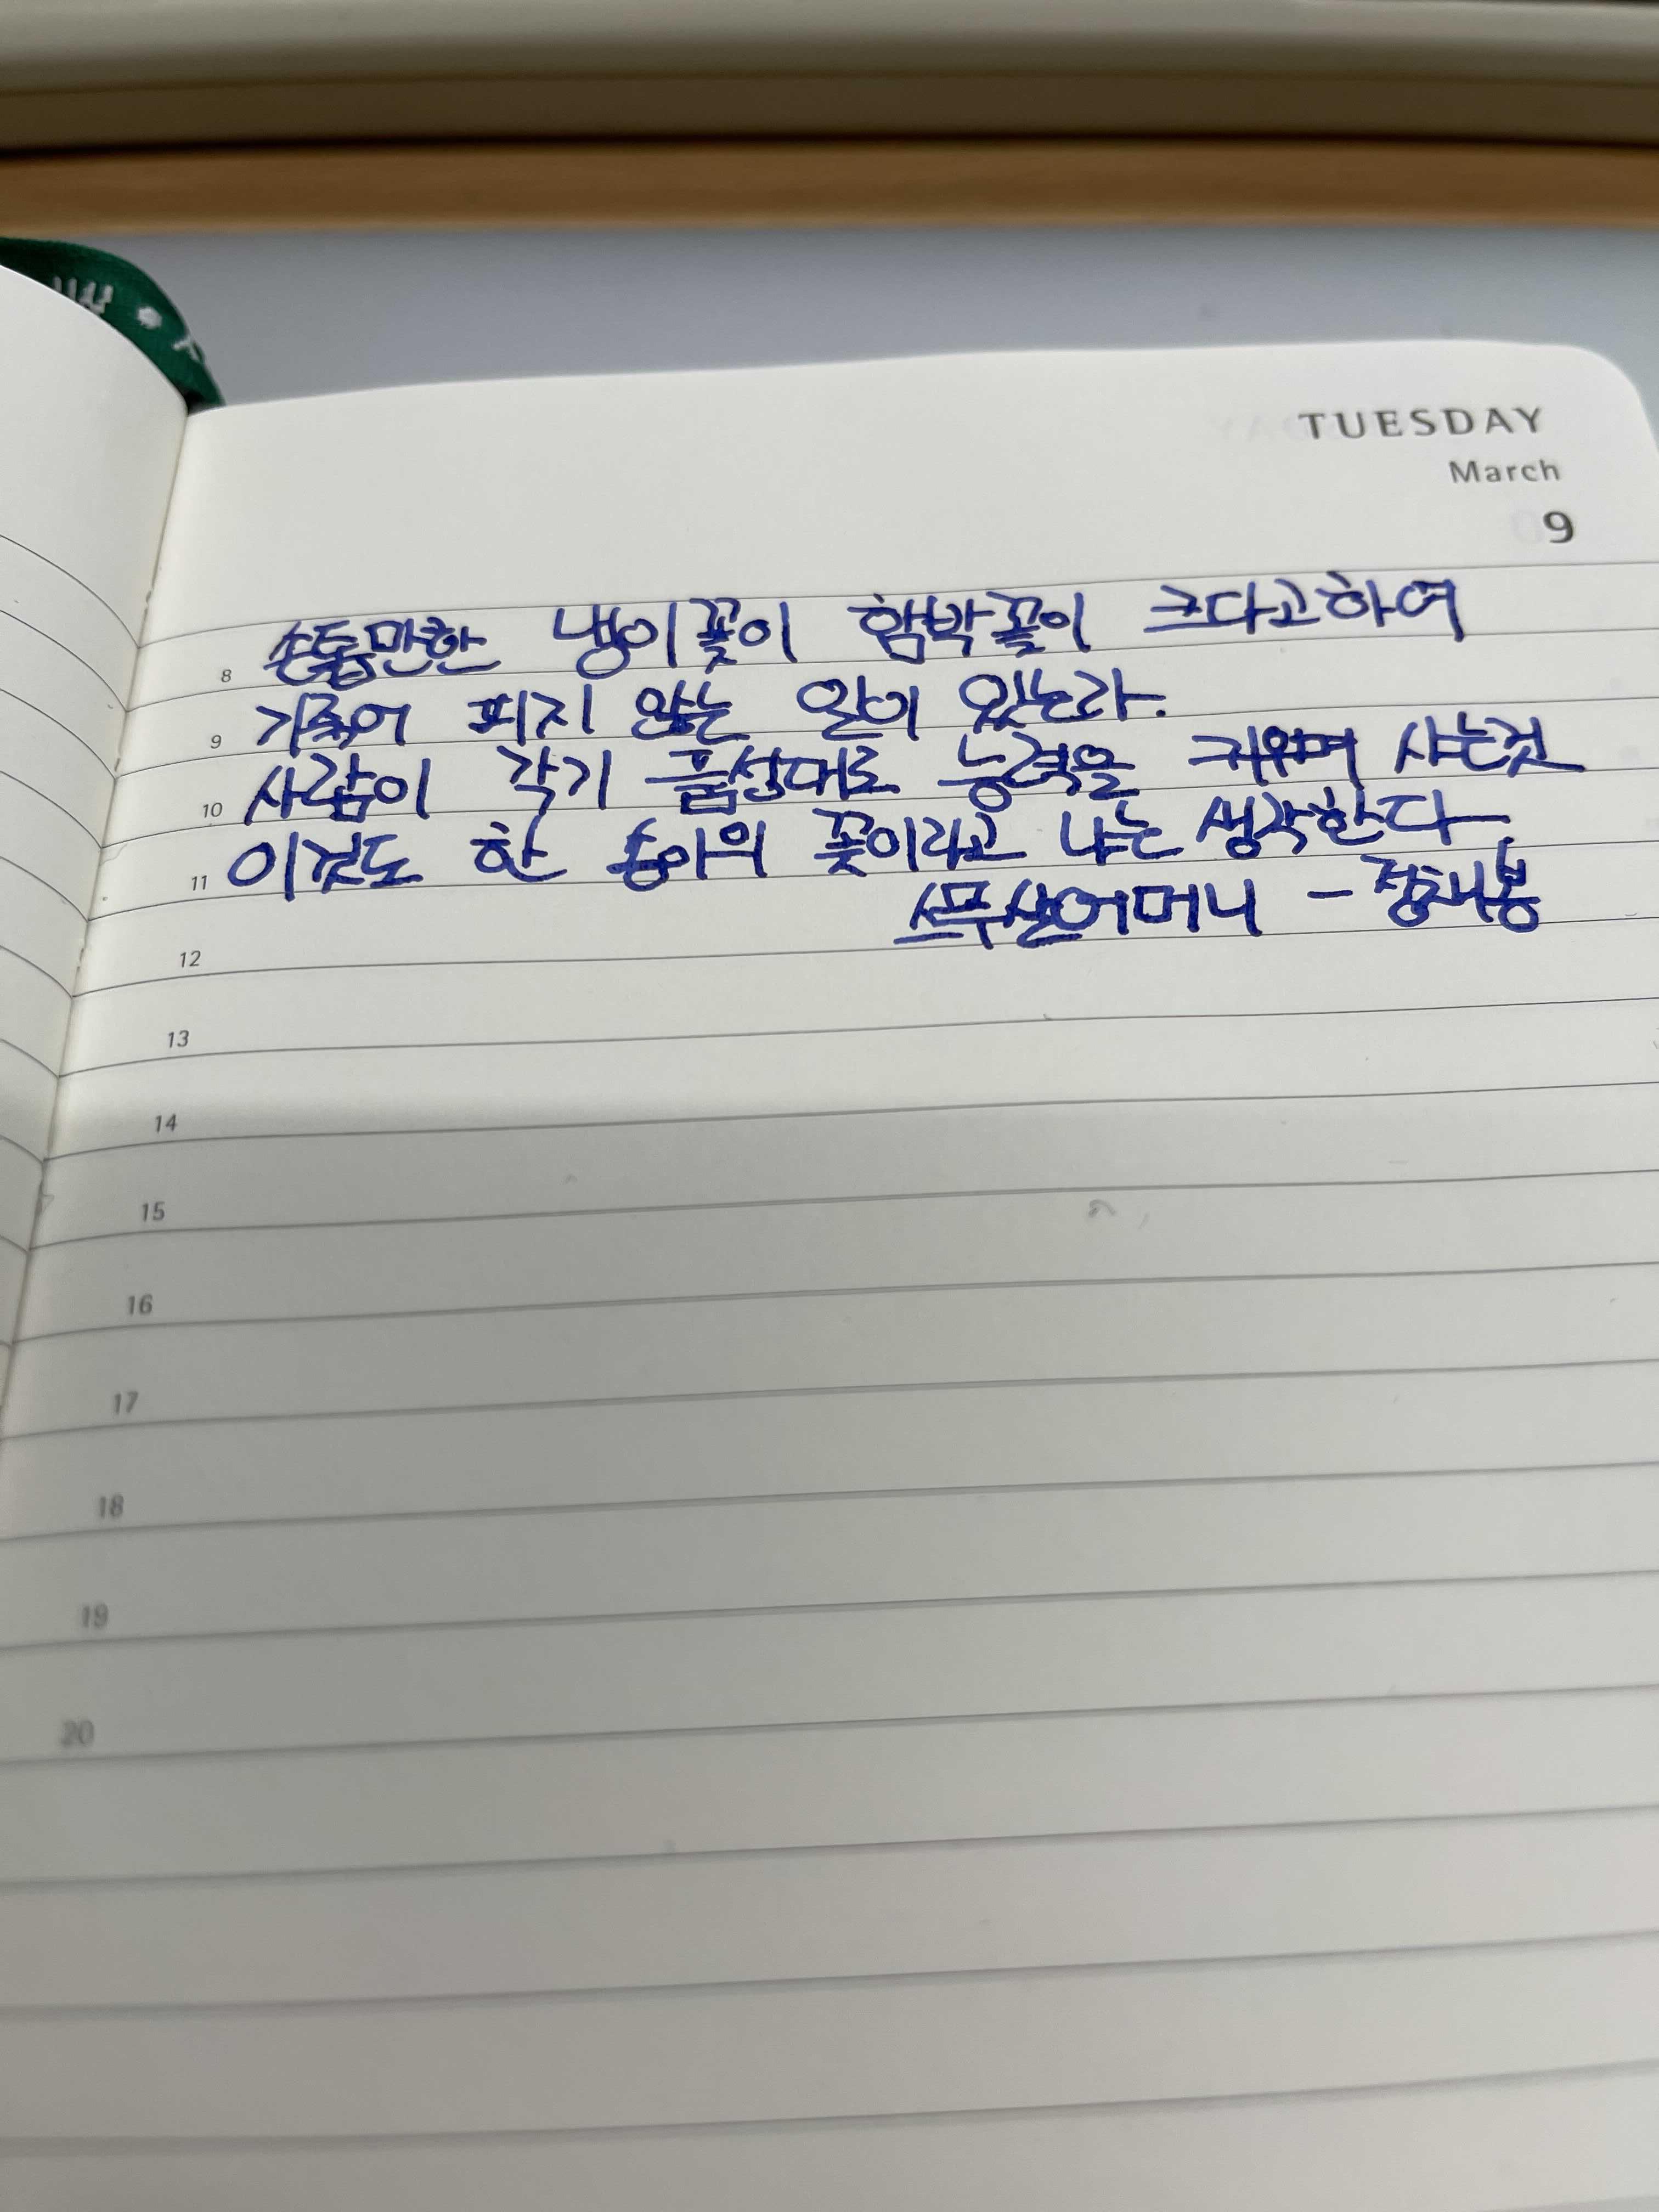 TUESDAY
March
9
8 손톱만한 냉이꽃이 함박꽃이 크다고하여
9 기죽어 피지 않는 일이 있는라.
10 사람이 각기 품성대로 능력을 키우며 사는것
11 이것도 한 송이의 꽃이라고 나는 생각한다
스무살어머니 - 정채봉
12
13
14
15
16
17
18
19
20